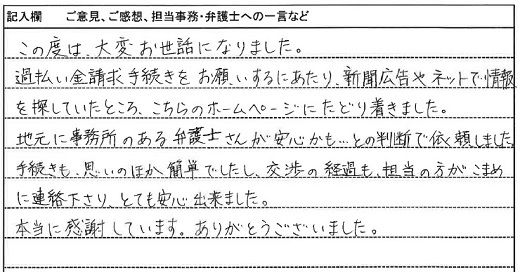 記入欄　ご意見、ご感想、担当事務・弁護士への一言など
この度は、大変お世話になりました。
過払い金請求手続きをお願いするにあたり、新聞広告やネットで情報
を探していたところ、こちらのホームページにたどり着きました。
地元に事務所のある弁護士さんが安心かも…との判断で依頼しました。
手続きも、思いのほか簡単でしたし、交渉の経過も、担当の方がこまめ
に連絡下さり、とても安心出来ました。
本当に感謝しています。ありがとうございました。